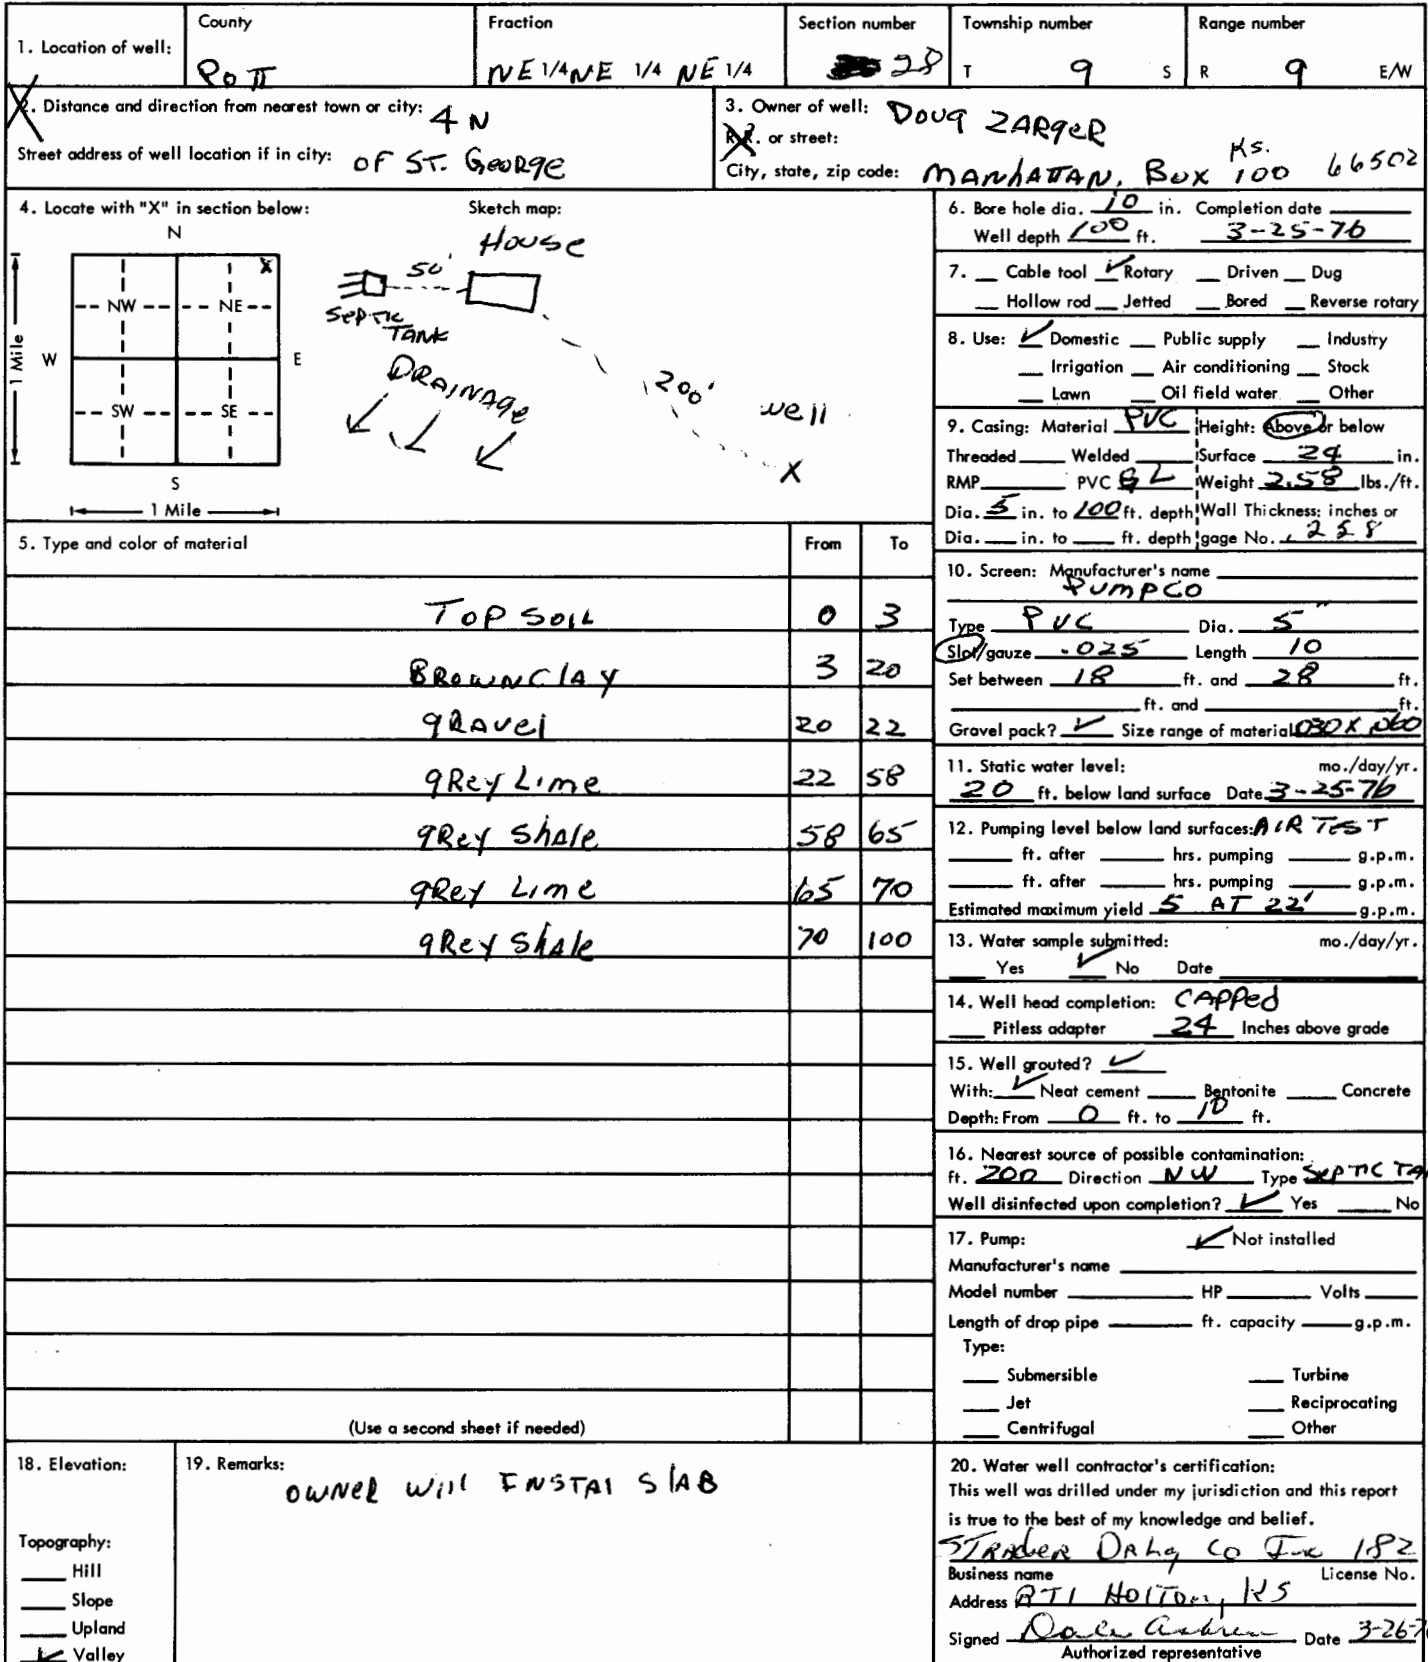 1. Location of well: County Pott Fraction NE 1/4 NE 1/4 NE 1/4 Section number 28 Township number T 9 S Range number R 9 E/W
2. Distance and direction from nearest town or city: 4 N
Street address of well location if in city: OF ST. GEORGE
3. Owner of well: DOUG ZARGER
R.R. or street:
City, state, zip code: MANHATTAN, BOX 100 KS. 66502
4. Locate with "X" in section below:
N
NW NE
W E
SW SE
S
1 Mile
1 Mile
X
Sketch map:
House
50'
SEPTIC
TANK
DRAINAGE
200'
well
X
5. Type and color of material From To
TOP SOIL 0 3
BROWN CLAY 3 20
gRAvel 20 22
gRey Lime 22 58
gRey Shale 58 65
gRey Lime 65 70
gRey Shale 70 100
(Use a second sheet if needed)
6. Bore hole dia. 10 in. Completion date
Well depth 100 ft. 3-25-76
7. Cable tool ✓ Rotary Driven Dug
Hollow rod Jetted Bored Reverse rotary
8. Use: ✓ Domestic Public supply Industry
Irrigation Air conditioning Stock
Lawn Oil field water Other
9. Casing: Material PVC Height: Above or below
Threaded Welded Surface 24 in.
RMP PVC GL Weight 2.58 lbs./ft.
Dia. 5 in. to 100 ft. depth Wall Thickness: inches or
Dia. in. to ft. depth gage No. .258
10. Screen: Manufacturer's name
PUMPCO
Type PVC Dia. 5"
Slot/gauze .025 Length 10
Set between 18 ft. and 28 ft.
ft. and ft.
Gravel pack? ✓ Size range of material 030 X 060
11. Static water level: mo./day/yr.
20 ft. below land surface Date 3-25-76
12. Pumping level below land surfaces: AIR TEST
ft. after hrs. pumping g.p.m.
ft. after hrs. pumping g.p.m.
Estimated maximum yield 5 AT 22' g.p.m.
13. Water sample submitted: mo./day/yr.
Yes ✓ No Date
14. Well head completion: CAPPed
Pitless adapter 24 Inches above grade
15. Well grouted? ✓
With: ✓ Neat cement Bentonite Concrete
Depth: From 0 ft. to 10 ft.
16. Nearest source of possible contamination:
ft. 200 Direction NW Type SEPTIC TA
Well disinfected upon completion? ✓ Yes No
17. Pump: ✓ Not installed
Manufacturer's name
Model number HP Volts
Length of drop pipe ft. capacity g.p.m.
Type:
Submersible Turbine
Jet Reciprocating
Centrifugal Other
18. Elevation:
Topography:
Hill
Slope
Upland
✓ Valley
19. Remarks:
OWNER Will INSTAl SlAB
20. Water well contractor's certification:
This well was drilled under my jurisdiction and this report
is true to the best of my knowledge and belief.
STRADER DRLg Co Inc 182
Business name License No.
Address RT1 HOLTON, KS
Signed Date 3-26-7
Authorized representative